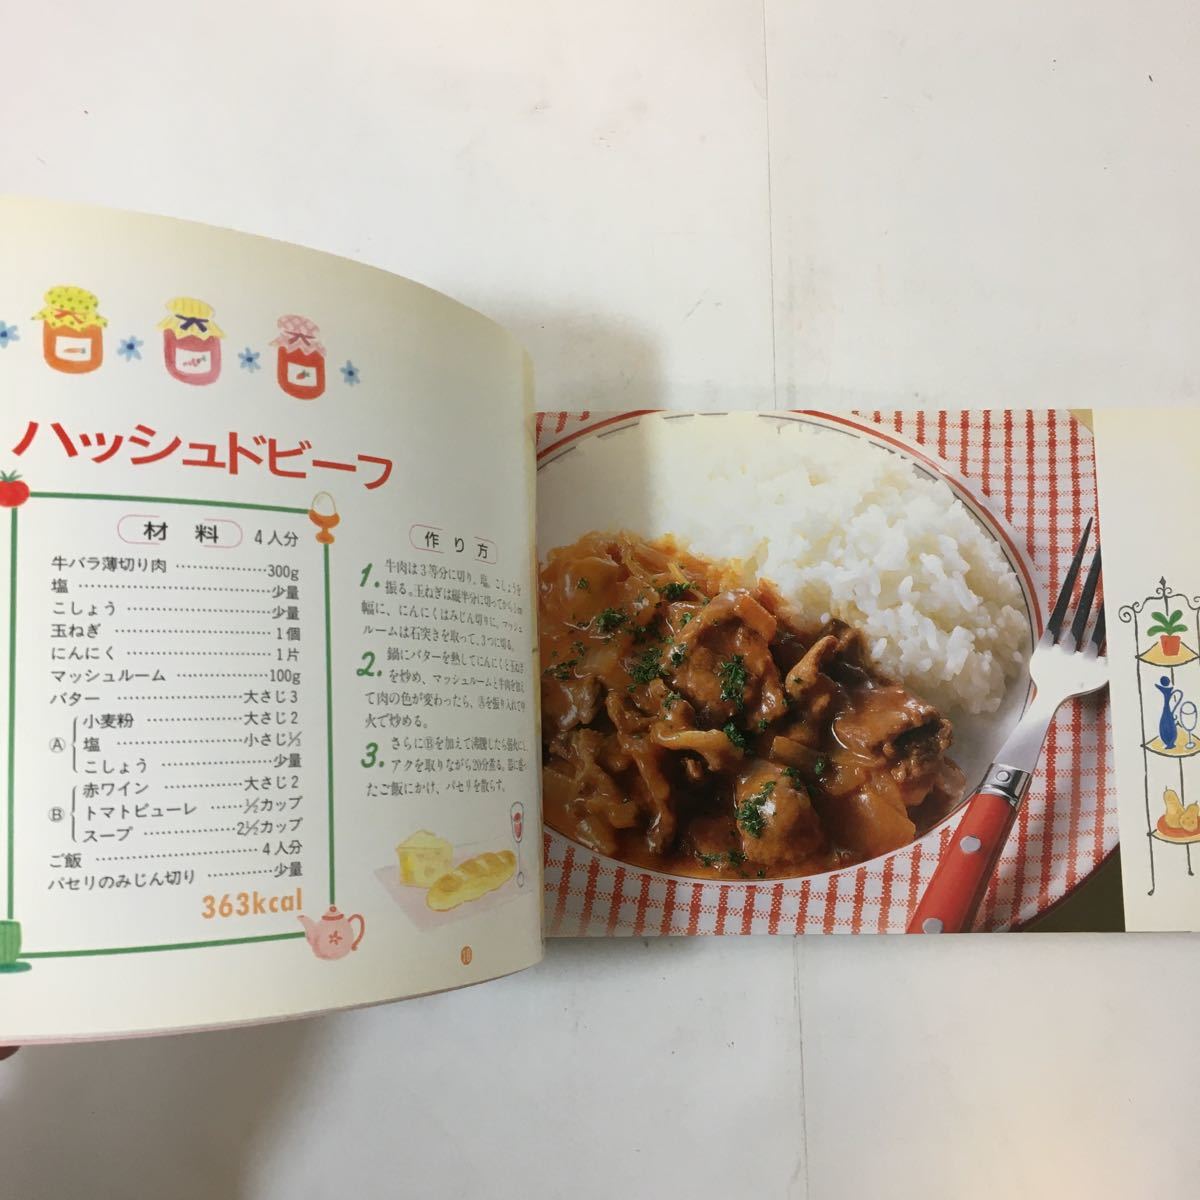 ハッシュドビーフ
材料 4人分
牛バラ薄切り肉 ………………300g
塩 ………………………………少量
こしょう ………………………少量
玉ねぎ …………………………1個
にんにく ………………………1片
マッシュルーム ………………100g
バター ……………………大さじ3
Ⓐ 小麦粉 ………………大さじ2
塩 ……………………小さじ⅓
こしょう ………………少量
Ⓑ 赤ワイン ……………大さじ2
トマトピューレ ……½カップ
スープ ……………2½カップ
ご飯 …………………………4人分
パセリのみじん切り …………少量
363kcal
作り方
1. 牛肉は3等分に切り、塩、こしょうを
振る。玉ねぎは縦半分に切ってから1cm
幅に、にんにくはみじん切りに。マッシュ
ルームは石突きを取って、3つに切る。
2. 鍋にバターを熱してにんにくと玉ねぎ
を炒め、マッシュルームと牛肉を加え
て肉の色が変わったら、Ⓐを振り入れて中
火で炒める。
3. さらにⒷを加えて沸騰したら弱火にし、
アクを取りながら20分煮る。器に盛っ
たご飯にかけ、パセリを散らす。
10